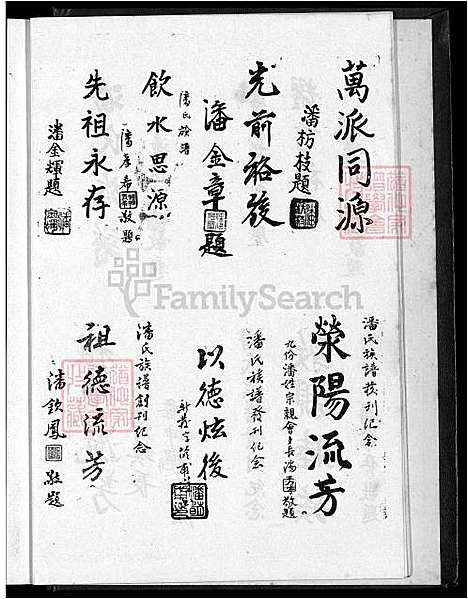 萬派同源
潘枋枝題
光前裕後
潘金章題
潘氏族譜
飲水思源
潘 希 敬題
先祖永存
潘金輝題
潘氏族譜發刊紀念
滎陽流芳
九份潘姓宗親會會長潘 敬題
潘氏族譜發刊紀念
以德炫後
潘氏族譜創刊紀念
祖德流芳
潘欽鳳 敬題
FamilySearch